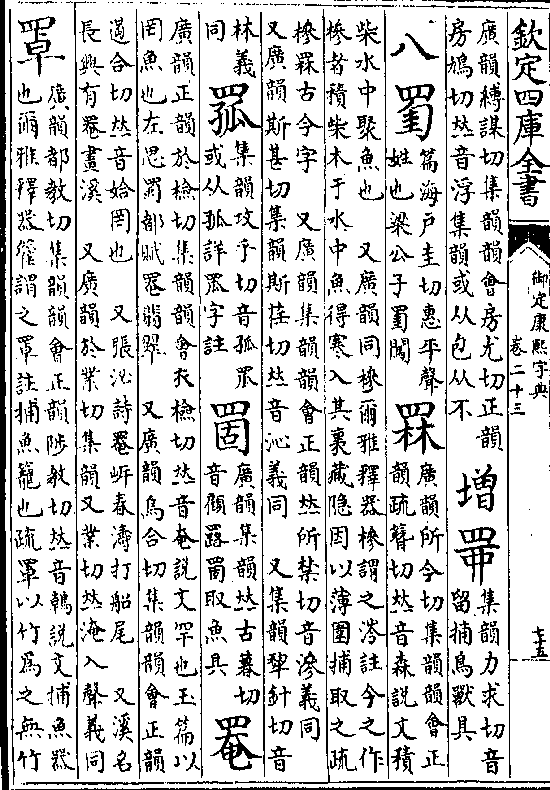 欽定四庫全書
御定康熙字典
卷二十三
七五
廣韻縛謀切集韻韻會房尤切正韻
房鳩切𠀤音浮集韻或从包从不
增
集韻力求切音
留捕鳥獸具
八
篇海戶圭切惠平聲
姓也梁公子罣閱
罧
廣韻所今切集韻韻會正
韻疏簪切𠀤音森說文積
柴水中聚魚也 又廣韻同槮爾雅釋器槮謂之涔註今之作
槮者積柴木于水中魚得寒入其裏藏隱因以薄圍捕取之疏
槮罧古今字 又廣韻集韻韻會正韻𠀤所禁切音滲義同
又廣韻斯甚切集韻斯荏切𠀤音沁義同 又集韻犂針切音
林義
同
罛
集韻攻乎切音孤罛
或从孤詳罛字註
罟
廣韻集韻𠀤古暮切
音顧罟罬取魚具
罨
廣韻正韻於檢切集韻韻會衣檢切𠀤音奄說文罕也玉篇以
罔魚也左思蜀都賦罨翡翠 又廣韻烏合切集韻韻會正韻
遏合切𠀤音姶罔也 又張泌詩罨岸春濤打船尾 又溪名
長興有罨畫溪 又廣韻於業切集韻乂業切𠀤淹入聲義同
罩
廣韻都教切集韻韻會正韻陟教切𠀤音𩋰說文捕魚器
也爾雅釋器篧謂之罩註捕魚籠也疏罩以竹爲之無竹